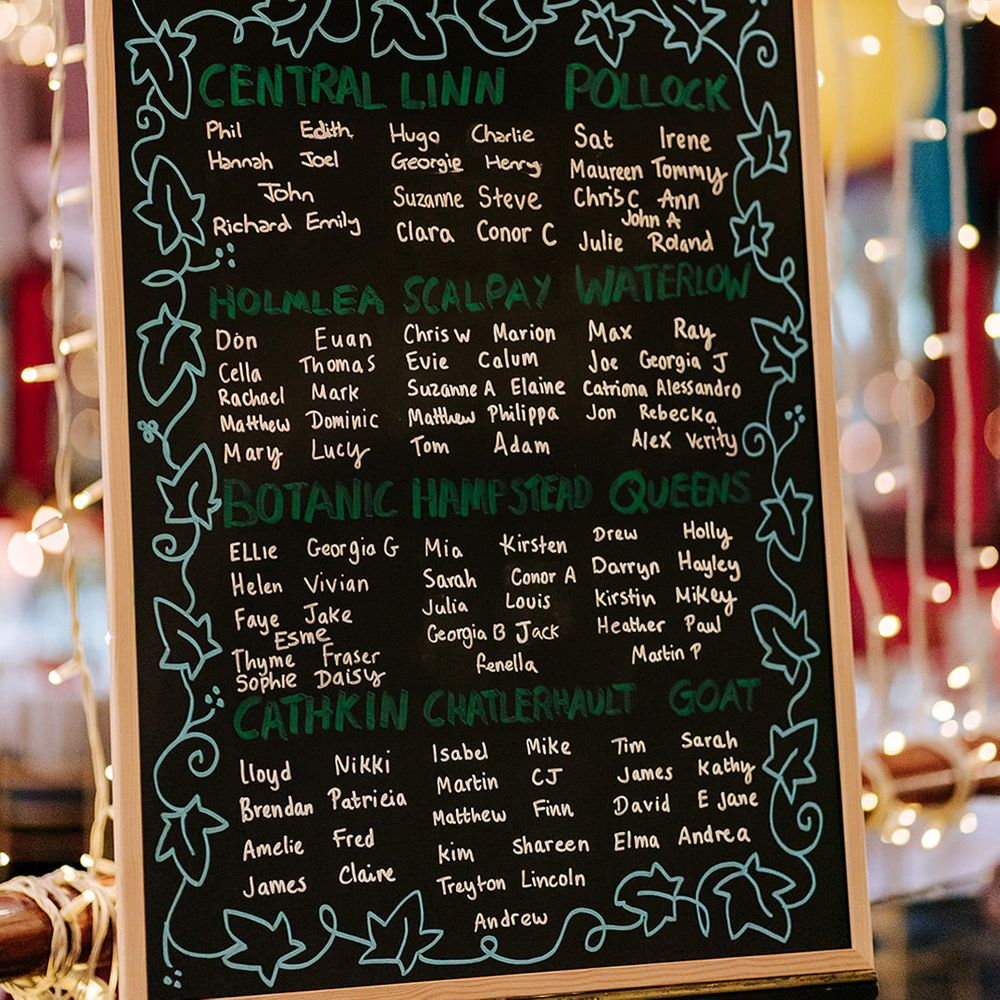 CENTRAL LINN POLLOCK
Phil Edith Hugo Charlie Sat Irene
Hannah Joel Georgie Henry Maureen Tommy
John Suzanne Steve Chris C Ann
John A
Richard Emily Clara Conor C Julie Roland
HOLMLEA SCALPAY WATERLOW
Don Euan Chris W Marion Max Ray
Cella Thomas Evie Calum Joe Georgia J
Rachael Mark Suzanne A Elaine Catriona Alessandro
Matthew Dominic Matthew Philippa Jon Rebecka
Mary Lucy Tom Adam Alex Verity
BOTANIC HAMPSTEAD QUEENS
Ellie Georgia G Mia Kirsten Drew Holly
Helen Vivian Sarah Conor A Darryn Hayley
Faye Jake Julia Louis Kirstin Mikey
Esme Georgia B Jack Heather Paul
Thyme Fraser Fenella Martin P
Sophie Daisy
CATHKIN CHATLERHAULT GOAT
Lloyd Nikki Isabel Mike Tim Sarah
Brendan Patricia Martin CJ James Kathy
Amelie Fred Matthew Finn David E Jane
James Claire Kim Shareen Elma Andrea
Treyton Lincoln
Andrew